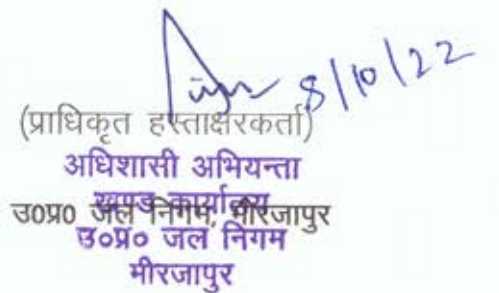 8/10/22
(प्राधिकृत हस्ताक्षरकर्ता)
अधिशासी अभियन्ता
खण्ड कार्यालय
उ०प्र० जल निगम, मीरजापुर
उ०प्र० जल निगम
मीरजापुर